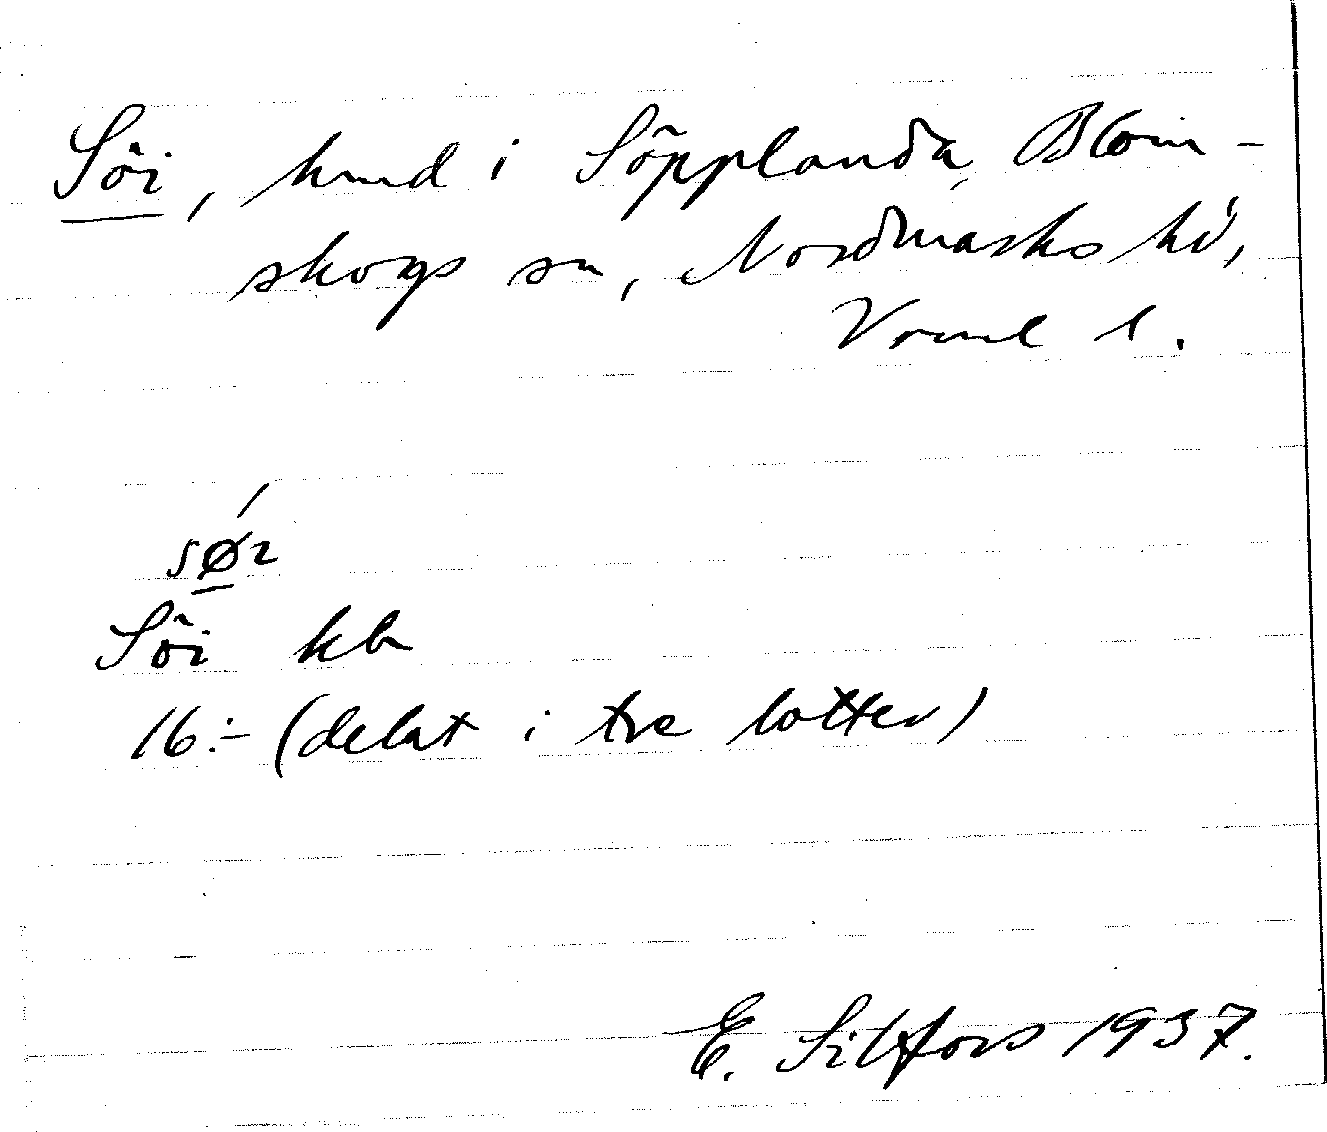 Söi, hmd i Söpplanda, Blom-
skogs sn, Nordmarks hd,
Värml l.
sǿı
Söi kb
16:- (delat i tre lotter)
E. Silfors 1937.